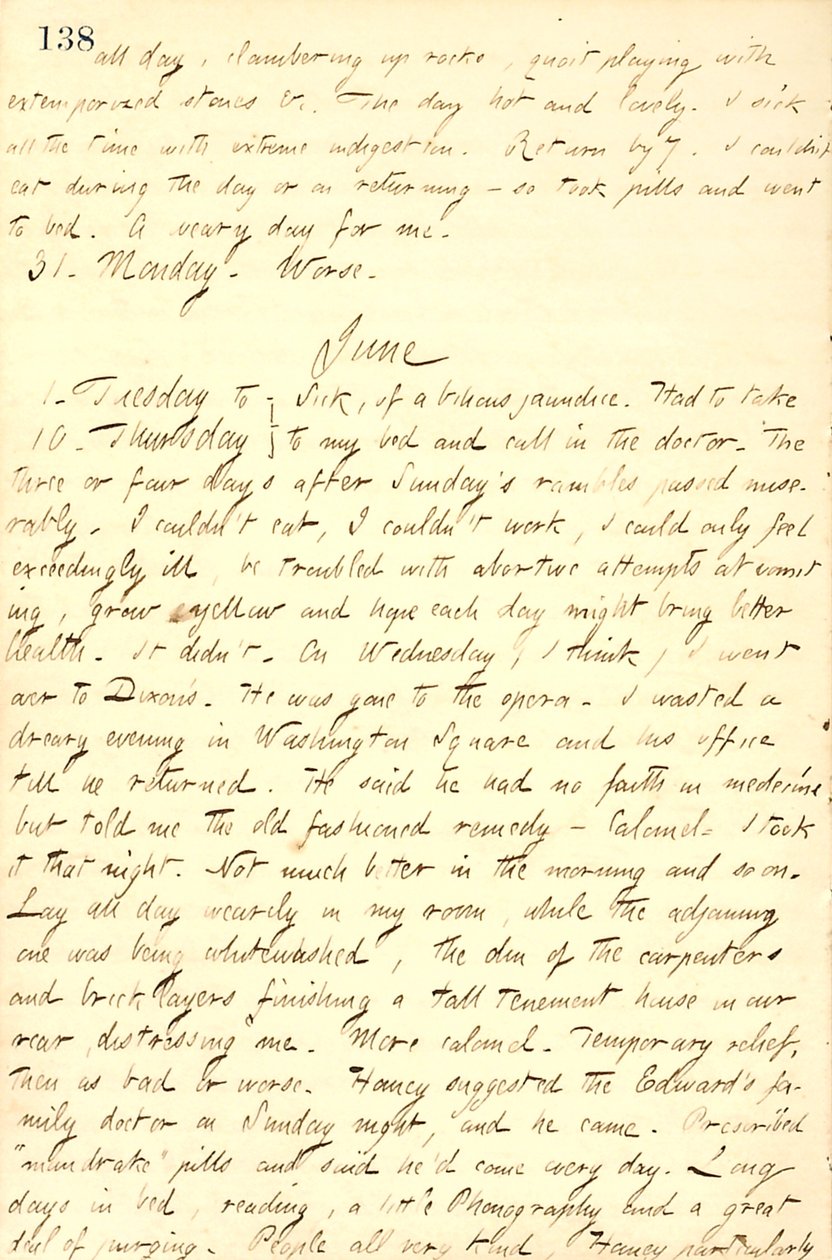 138
all day, clambering up rocks, quoit playing with
extemporized stones &c. The day hot and lovely. I sick
all the time with extreme indigestion. Return by 7. I couldn't
eat during the day or on returning — so took pills and went
to bed. A weary day for me.
31. Monday. Worse.
June
1. Tuesday to } Sick, of a bilious jaundice. Had to take
10. Thursday } to my bed and call in the doctor. The
three or four days after Sunday's rambles passed mise-
rably. I couldn't eat, I couldn't work, I could only feel
exceedingly ill, be troubled with abortive attempts at vomit
ing, grow yellow and hope each day might bring better
health. It didn't. On Wednesday, I think, I went
over to Dixon's. He was gone to the opera. I wasted a
dreary evening in Washington Square and his office
till he returned. He said he had no faith in medecine
but told me the old fashioned remedy — Calomel. I took
it that night. Not much better in the morning and so on.
Lay all day wearily in my room, while the adjoining
one was being whitewashed, the din of the carpenters
and bricklayers finishing a tall tenement house in our
rear, distressing me. More calomel. Temporary relief,
then as bad or worse. Haney suggested the Edward's fa-
mily doctor on Sunday night, and he came. Prescribed
"mandrake" pills and said he'd come every day. Long
days in bed, reading, a little Phonography and a great
deal of purging. People all very kind, Haney particularly